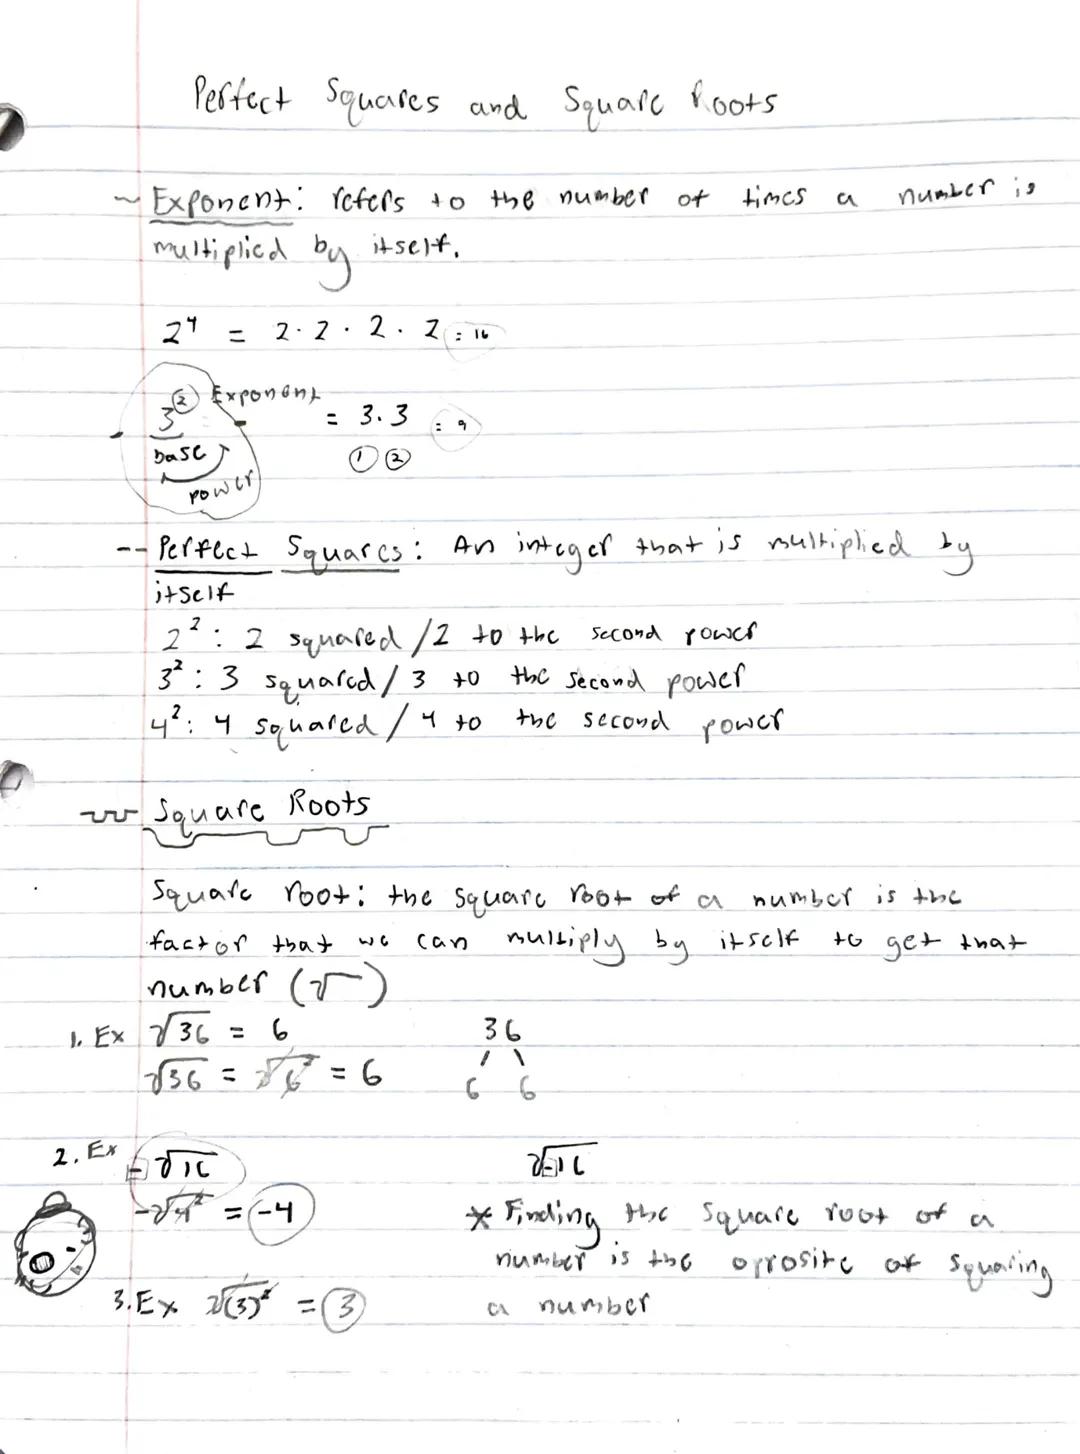 Perfect Squares and Square Roots
~ Exponent: refers to the number of times a number is
multiplied by itself.
2⁴ = 2·2·2·2 = 16
3² Exponent = 3·3 = 9
base ① ②
power
-- Perfect Squares: An integer that is multiplied by
itself
2²: 2 squared/2 to the second power
3²: 3 squared/3 to the second power
4²: 4 squared/4 to the second power
Square Roots
Square root: the square root of a number is the
factor that we can multiply by itself to get that
number (√)
1. Ex √36 = 6 36
√36 = √6² = 6 6 6
2. Ex -√16 √-16
-√4² = -4 * Finding the square root of a
number is the opposite of squaring
3. Ex √(3)² = 3 a number